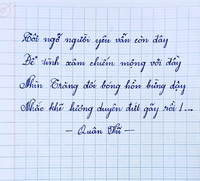 Tôi ngỡ người yêu vẫn còn đây
Để tình xâm chiếm mộng với đầy
Nhìn Trăng đôi bóng hồn bừng dậy
Nhắc khẽ hương duyên đứt gãy rồi !...
- Quân Vũ -